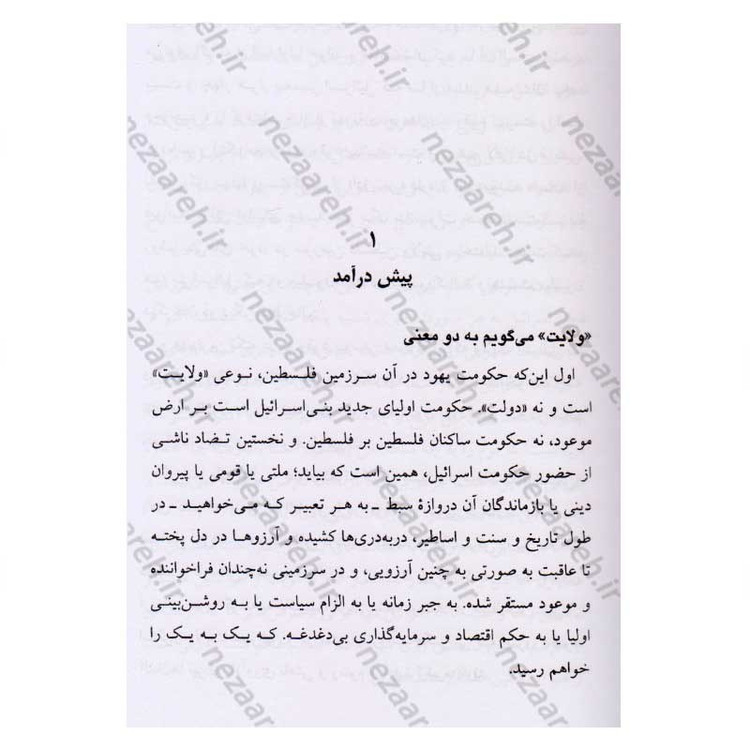 ۱
پیش درآمد
«ولایت» می‌گویم به دو معنی
اول این‌که حکومت یهود در آن سرزمین فلسطین، نوعی «ولایت»
است و نه «دولت». حکومت اولیای جدید بنی‌اسرائیل است بر ارض
موعود، نه حکومت ساکنان فلسطین بر فلسطین. و نخستین تضاد ناشی
از حضور حکومت اسرائیل، همین است که بیاید؛ ملتی یا قومی یا پیروان
دینی یا بازماندگان آن دروازهٔ سبط ـ به هر تعبیر که می‌خواهید ـ در
طول تاریخ و سنت و اساطیر، دربه‌دری‌ها کشیده و آرزوها در دل پخته
تا عاقبت به صورتی به چنین آرزویی، و در سرزمینی نه‌چندان فراخوانده
و موعود مستقر شده. به جبر زمانه یا به الزام سیاست یا به روشن‌بینی
اولیا یا به حکم اقتصاد و سرمایه‌گذاری بی‌دغدغه. که یک به یک را
خواهم رسید.
nezaareh.ir